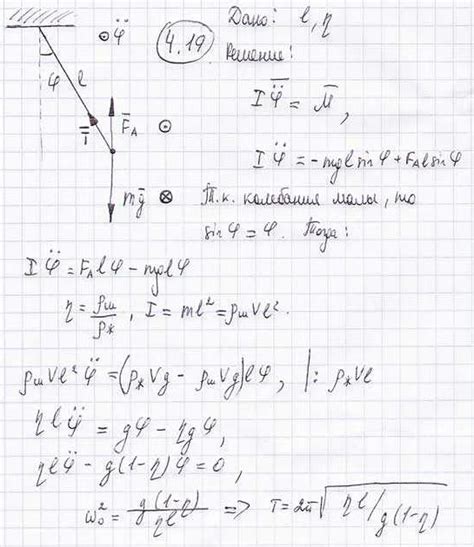 φ̈
4.19
Дано: l, η
Решение:
φ l
T̄ F̄_A
mḡ
I φ̈̄ = M̄,
I φ̈ = -mgl sin φ + F_A l sin φ
Т.к. колебания малы, то
sin φ = φ. Тогда:
I φ̈ = F_A l φ - mgl φ
η = ρ_ш/ρ_ж, I = ml² = ρ_ш V l².
ρ_ш V l² φ̈ = (ρ_ж V g - ρ_ш V g) l φ, |: ρ_ж V l
η l φ̈ = g φ - η g φ,
η l φ̈ - g(1-η) φ = 0,
ω₀² = g(1-η)/ηl ⇒ T = 2π √(ηl/g(1-η))